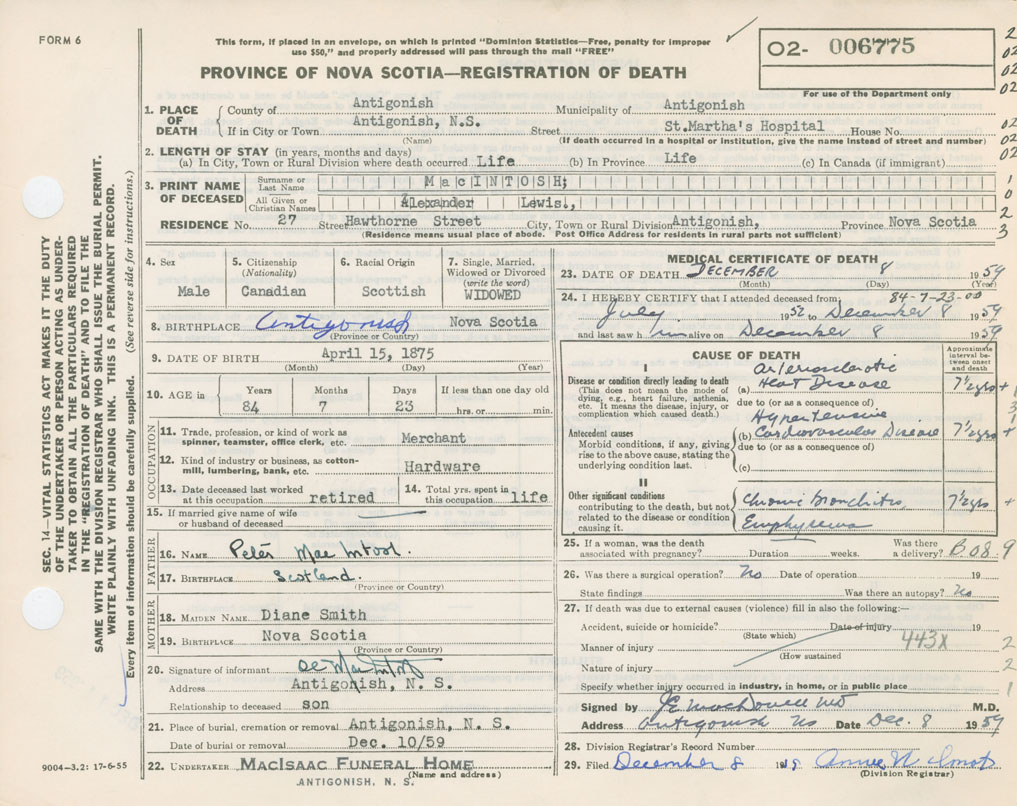 FORM 6
This form, if placed in an envelope, on which is printed "Dominion Statistics—Free, penalty for improper
use $50," and properly addressed will pass through the mail "FREE"
O2- 006775
For use of the Department only
PROVINCE OF NOVA SCOTIA—REGISTRATION OF DEATH
2
02
02
02
02
02
1
0
2
3
1. PLACE OF DEATH { County of Antigonish Municipality of Antigonish
If in City or Town Antigonish, N.S. Street St.Martha's Hospital House No.
(Name) (If death occurred in a hospital or institution, give the name instead of street and number)
2. LENGTH OF STAY (in years, months and days)
(a) In City, Town or Rural Division where death occurred Life (b) In Province Life (c) In Canada (if immigrant)
3. PRINT NAME OF DECEASED
Surname or Last Name MacINTOSH;
All Given or Christian Names Alexander Lewis.,
RESIDENCE No. 27 Street Hawthorne Street City, Town or Rural Division Antigonish, Province Nova Scotia
(Residence means usual place of abode. Post Office Address for residents in rural parts not sufficient)
SEC. 14—VITAL STATISTICS ACT MAKES IT THE DUTY
OF THE UNDERTAKER OR PERSON ACTING AS UNDER-
TAKER TO OBTAIN ALL THE PARTICULARS REQUIRED
IN THE "REGISTRATION OF DEATH" AND TO FILE THE
SAME WITH THE DIVISION REGISTRAR WHO SHALL ISSUE THE BURIAL PERMIT.
WRITE PLAINLY WITH UNFADING INK. THIS IS A PERMANENT RECORD.
Every item of information should be carefully supplied. (See reverse side for instructions.)
4. Sex
Male
5. Citizenship
(Nationality)
Canadian
6. Racial Origin
Scottish
7. Single, Married,
Widowed or Divorced
(write the word)
WIDOWED
8. BIRTHPLACE Antigonish Nova Scotia
(Province or Country)
9. DATE OF BIRTH April 15, 1875
(Month) (Day) (Year)
10. AGE in { Years Months Days If less than one day old
84 7 23 hrs. or min.
OCCUPATION
11. Trade, profession, or kind of work as
spinner, teamster, office clerk, etc. Merchant
12. Kind of industry or business, as cotton-
mill, lumbering, bank, etc. Hardware
13. Date deceased last worked
at this occupation retired
14. Total yrs. spent in
this occupation life
15. If married give name of wife
or husband of deceased
FATHER
16. NAME Peter MacIntosh.
17. BIRTHPLACE Scotland.
(Province or Country)
MOTHER
18. MAIDEN NAME Diane Smith
19. BIRTHPLACE Nova Scotia
(Province or Country)
20. Signature of informant MacIntosh
Address Antigonish, N. S.
Relationship to deceased son
21. Place of burial, cremation or removal Antigonish, N. S.
Date of burial or removal Dec. 10/59
22. UNDERTAKER MacIsaac Funeral Home
(Name and address)
ANTIGONISH, N. S.
9004—3.2: 17-6-55
MEDICAL CERTIFICATE OF DEATH
23. DATE OF DEATH DECEMBER 8 1959
(Month) (Day) (Year)
24. I HEREBY CERTIFY that I attended deceased from; 84-7-23-00
July 1952 to December 8 1959
and last saw him alive on December 8 1959
CAUSE OF DEATH
Approximate
interval be-
tween onset
and death
I
Disease or condition directly leading to death
(This does not mean the mode of
dying, e.g., heart failure, asthenia,
etc. It means the disease, injury, or
complication which caused death.)
Arteriosclerotic
(a) Heart Disease 7½ yrs +
due to (or as a consequence of)
Hypertensive
Antecedent causes
Morbid conditions, if any, giving
rise to the above cause, stating the
underlying condition last.
(b) Cardiovascular Disease 7½ yrs +
due to (or as a consequence of)
(c)
II
Other significant conditions
contributing to the death, but not
related to the disease or condition
causing it.
Chronic Bronchitis 7½ yrs +
Emphysema
25. If a woman, was the death
associated with pregnancy? Duration weeks. Was there
a delivery? B.08.9
26. Was there a surgical operation? No Date of operation 19
State findings Was there an autopsy? No
27. If death was due to external causes (violence) fill in also the following:—
Accident, suicide or homicide? Date of injury 19
(State which)
Manner of injury 443X 2
(How sustained
Nature of injury 2
Specify whether injury occurred in industry, in home, or in public place 1
Signed by MacDonell MD M.D.
Address Antigonish NS Date Dec. 8 1959
28. Division Registrar's Record Number
29. Filed December 8 19
(Division Registrar)